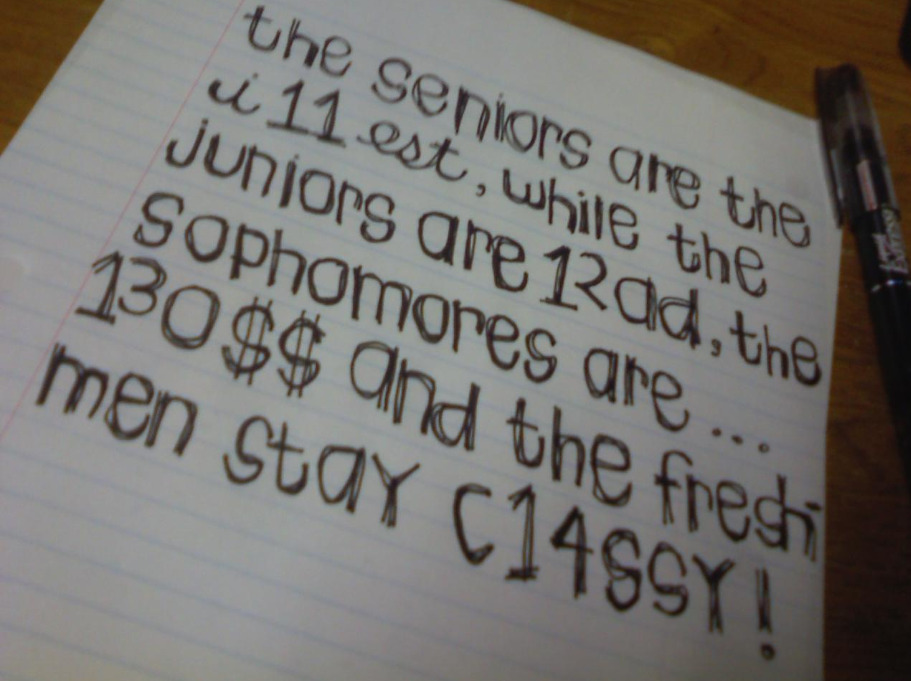 the seniors are the
i11est, while the
juniors are 12ad, the
sophomores are...
130$$ and the fresh-
men stay C14SSY!